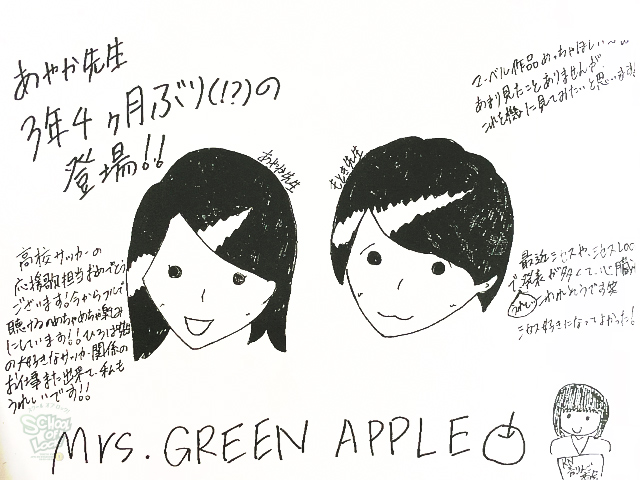 あやか先生
3年4ヶ月ぶり(!?)の
登場!!
マーベル作品めっちゃほしい〜
あまり見たことありませんが、
これを機に見てみたいと思います
あやか先生
もとき先生
高校サッカーの
応援歌担当おめでとう
ございます!今からフルで
聴けるのめちゃめちゃ楽しみ
にしています!!ひろぱ先生
の大好きなサッカー関係の
お仕事また出来て、私も
うれしいです!!
最近ミセスや、ミセスLOC
で発表が多くて、心臓
こわれそうです笑
ミセス好きになってよかった!
Mrs. GREEN APPLE
RN